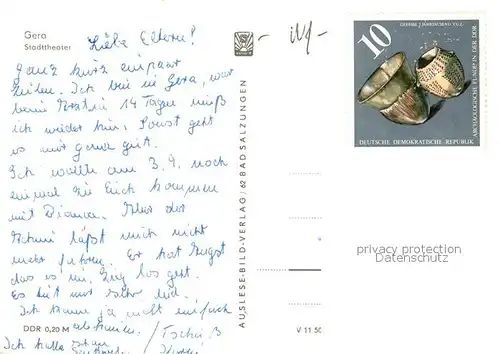 Gera
Stadttheater
Liebe Eltern!
Ganz kurz ein paar
Zeilen. Ich bin in Gera, war
beim Arzt in 14 Tagen muß
ich wieder hin. Sonst geht
es mir ganz gut.
Ich wollte am 3.9. noch
einmal zu Euch kommen
mit Diana. Aber der
läßt mich nicht
mehr fahren. Er hat Angst
das es im Zug los geht.
Es tut mir sehr leid.
Ich kann ja nicht einfach
DDR 0,20 M
Ich
AUSLESE-BILD-VERLAG / 62 BAD SALZUNGEN
V 11 50
10
ARCHÄOLOGISCHE FUNDE IN DER DDR
DEUTSCHE DEMOKRATISCHE REPUBLIK
privacy protection
Datenschutz